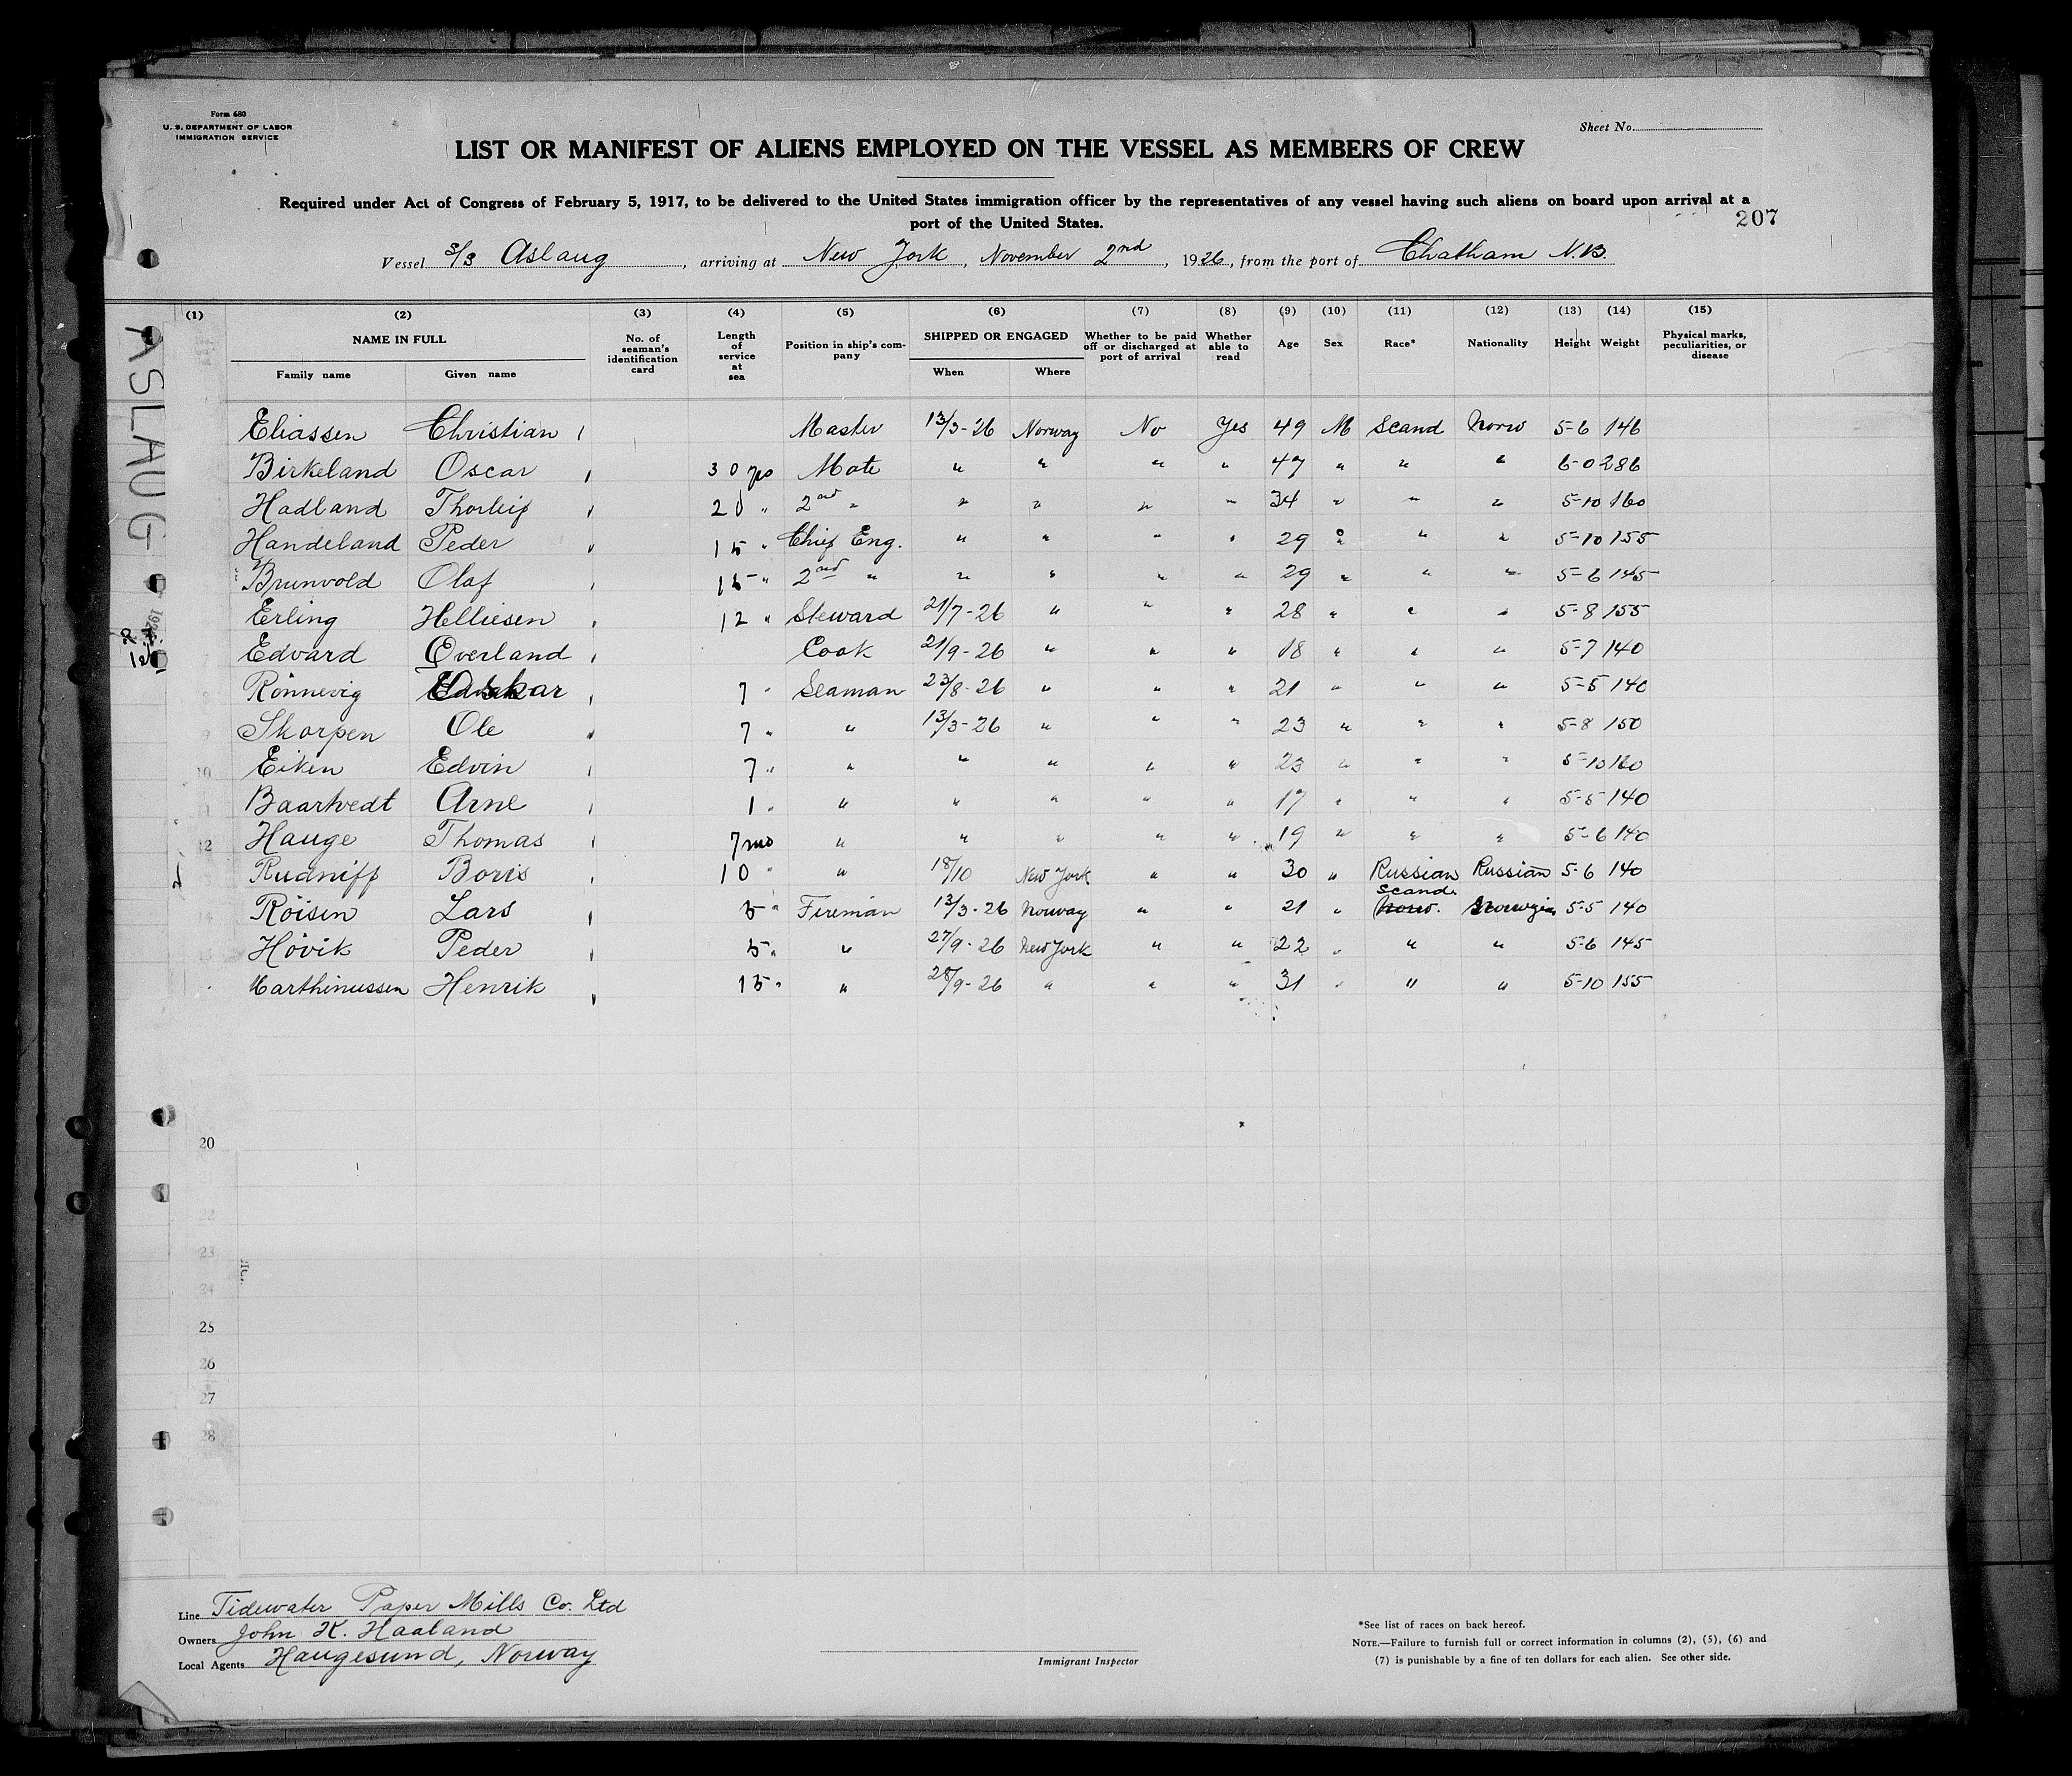 Form 680
U. S. DEPARTMENT OF LABOR
IMMIGRATION SERVICE
Sheet No.
LIST OR MANIFEST OF ALIENS EMPLOYED ON THE VESSEL AS MEMBERS OF CREW
Required under Act of Congress of February 5, 1917, to be delivered to the United States immigration officer by the representatives of any vessel having such aliens on board upon arrival at a
port of the United States.
207
Vessel S/S Aslaug, arriving at New York, November 2nd, 1926, from the port of Chatham N.B.
ASLAUG
(1) (2) (3) (4) (5) (6) (7) (8) (9) (10) (11) (12) (13) (14) (15)
NAME IN FULL Family name Given name No. of seaman's identification card Length of service at sea Position in ship's company SHIPPED OR ENGAGED When Where Whether to be paid off or discharged at port of arrival Whether able to read Age Sex Race* Nationality Height Weight Physical marks, peculiarities, or disease
Eliassen Christian Master 13/3-26 Norway No Yes 49 M Scand Norw 5-6 146
Birkeland Oscar 30 yrs Mate " " " " 47 " " " 6-0 286
Hadland Thorleif 20 " 2nd " " " " " 34 " " " 5-10 160
Handeland Peder 15 " Chief Eng. " " " " 29 " " " 5-10 155
Brunvold Olaf 15 " 2nd " " " " " 29 " " " 5-6 145
Erling Helliesen 12 " Steward 21/7-26 " " " 28 " " " 5-8 155
Edvard Överland Cook 21/9-26 " " " 18 " " " 5-7 140
Rönnevig Oskar 7 " Seaman 23/8-26 " " " 21 " " " 5-5 140
Skorpen Ole 7 " " 13/3-26 " " " 23 " " " 5-8 150
10 Eiken Edvin 7 " " " " " " 23 " " " 5-10 160
11 Baartvedt Arne 1 " " " " " " 17 " " " 5-5 140
12 Hauge Thomas 7 mo " " " " " 19 " " " 5-6 140
Rudniff Boris 10 " " 18/10 New York " " 30 " Russian Russian 5-6 140
14 Röisen Lars 5 " Fireman 13/3-26 Norway " " 21 " Norw. Scand. Norwegian 5-5 140
Hövik Peder 5 " " 27/9-26 New York " " 22 " " " 5-6 145
Marthinussen Henrik 15 " " 28/9-26 " " " 31 " " " 5-10 155
20
22
23
24
25
26
27
28
Line Tidewater Paper Mills Co. Ltd
Owners John K. Haaland
Local Agents Haugesund, Norway
Immigrant Inspector
*See list of races on back hereof.
NOTE.—Failure to furnish full or correct information in columns (2), (5), (6) and
(7) is punishable by a fine of ten dollars for each alien. See other side.